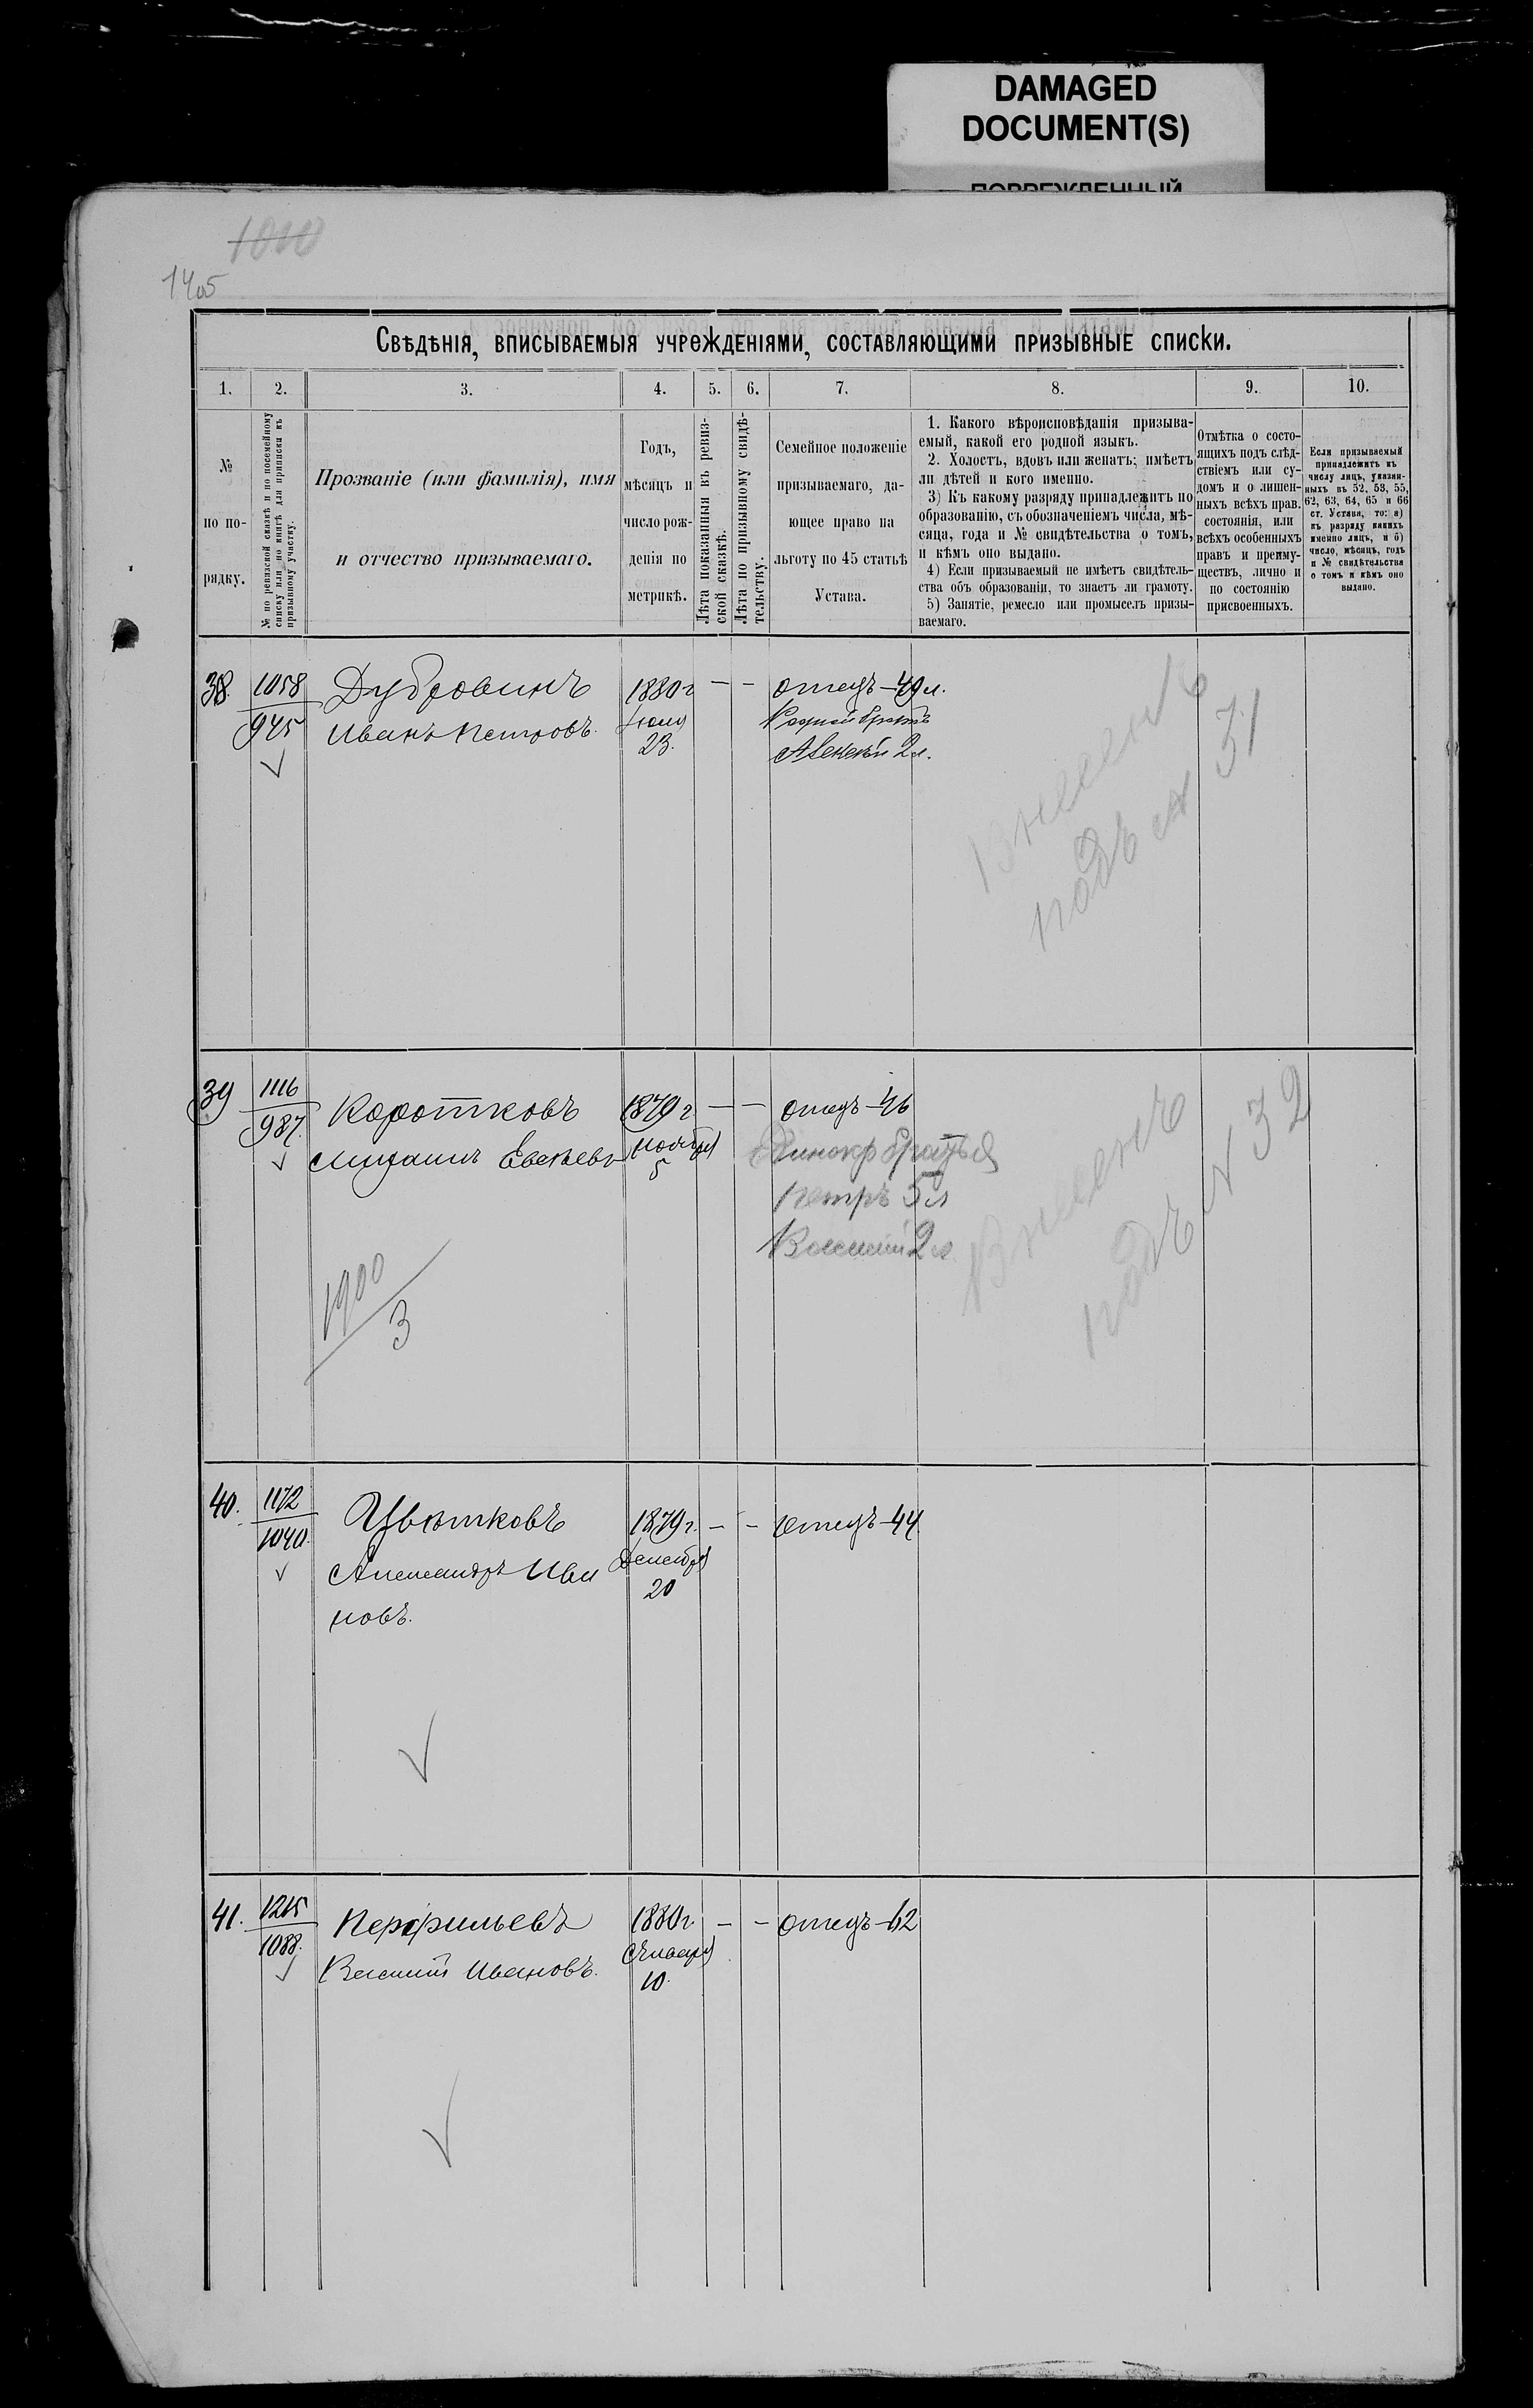 DAMAGED
DOCUMENT(S)
ПОВРЕЖДЕННЫЙ
1010
1405
Свѣдѣнія, вписываемыя учрежденіями, составляющими призывные списки.
1. 2. 3. 4. 5. 6. 7. 8. 9. 10.
№
по по-
рядку.
№ по ревизской сказкѣ и по посемейному
списку или по книгѣ для приписки къ
призывному участку.
Прозваніе (или фамилія), имя
и отчество призываемаго.
Годъ,
мѣсяцъ и
число рож-
денія по
метрикѣ.
Лѣта показанныя въ ревиз-
ской сказкѣ.
Лѣта по призывному свидѣ-
тельству.
Семейное положеніе
призываемаго, да-
ющее право на
льготу по 45 статьѣ
Устава.
1. Какого вѣроисповѣданія призыва-
емый, какой его родной языкъ.
2. Холостъ, вдовъ или женатъ; имѣетъ
ли дѣтей и кого именно.
3) Къ какому разряду принадлежитъ по
образованію, съ обозначеніемъ числа, мѣ-
сяца, года и № свидѣтельства о томъ,
и кѣмъ оно выдано.
4) Если призываемый не имѣетъ свидѣтель-
ства объ образованіи, то знаетъ ли грамоту.
5) Занятіе, ремесло или промыселъ призы-
ваемаго.
Отмѣтка о состо-
ящихъ подъ слѣд-
ствіемъ или су-
домъ и о лишен-
ныхъ всѣхъ прав.
состоянія, или
всѣхъ особенныхъ
правъ и преиму-
ществъ, лично и
по состоянію
присвоенныхъ.
Если призываемый
принадлежитъ къ
числу лицъ, указан-
ныхъ въ 52, 53, 55,
62, 63, 64, 65 и 66
ст. Устава, то: а)
къ разряду какихъ
именно лицъ, и б)
число, мѣсяцъ, годъ
и № свидѣтельства
о томъ и кѣмъ оно
выдано.
38. 1058 Дубровинъ 1880 г — — отецъ — 49 л.
945 Иванъ Петровъ. Родной братъ
23. Алексѣй 2 л.
Внесенъ
подъ № 31
39 1116 Коротковъ 1879 г — — отецъ — 46
987. Михаилъ Ноября
5 братья
Петръ 5 л
Василій 2 л
Внесенъ
подъ № 32
1900
3
40. 1172 Цвѣтковъ 1879 г. — — отецъ — 44
1040. Александръ Ива Декабря
новъ. 20
41. 1215 Перфильевъ 1880 г. — — отецъ — 62
1088. Василій Ивановъ. Января
10.